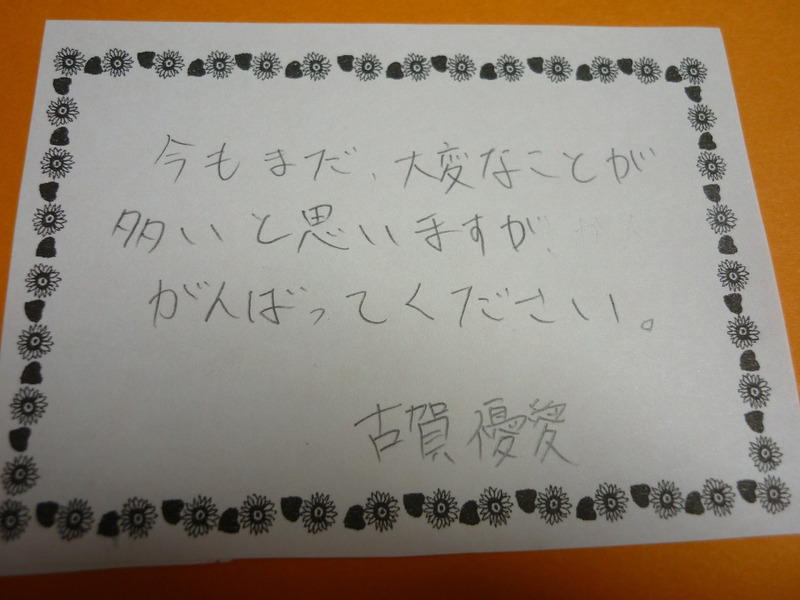 今もまだ、大変なことが
多いと思いますが、
がんばってください。
古賀優愛